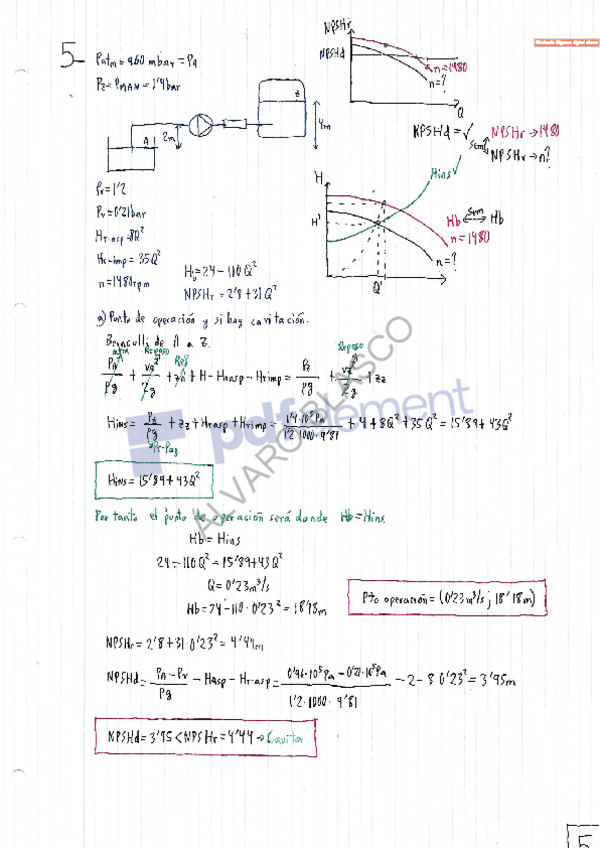 5- Patm = 960 mbar = PA
PZ = PMAN = 1'4 bar
NPSHr
NPSHd
n=1480
n=?
Q
Z
A
2m
4m
NPSHd = ✓
sem
NPSHr → 1480
NPSHr → n?
H
Hins ✓
H'
Hb ← sem → Hb
n=1480
n=?
Q'
Q
Pr = 1'2
Pv = 0'21 bar
Hr-asp = 8Q²
Hr-imp = 35Q²
n = 1480 rpm
Hb = 24 - 110Q²
NPSHr = 2'8 + 31Q²
a) Punto de operación y si hay cavitación.
Bernoulli de A a Z.
atm Reposo Ref Reposo
PA/ρg + VA²/2g + ZA + H - Hrasp - Hrimp = PZ/ρg + VZ²/2g + ZZ
Hins = PZ/ρg + ZZ + Hrasp + Hrimp = 1'4·10⁵Pa/1'2·1000·9'81 + 4 + 8Q² + 35Q² = 15'89 + 43Q²
Pr·Pag
Hins = 15'89 + 43Q²
Por tanto el punto de operación será donde Hb = Hins
Hb = Hins
24 - 110Q² = 15'89 + 43Q²
Q = 0'23 m³/s
Hb = 24 - 110·0'23² = 18'18 m
Pto operación = (0'23 m³/s ; 18'18 m)
NPSHr = 2'8 + 31·0'23² = 4'44 m
NPSHd = PA - Pv/ρg - Hasp - Hr-asp = 0'96·10⁵Pa - 0'21·10⁵Pa/1'2·1000·9'81 - 2 - 8·0'23² = 3'95 m
NPSHd = 3'95 < NPSHr = 4'44 → Cavita
ÁLVARO BLASCO
pdfelement
5